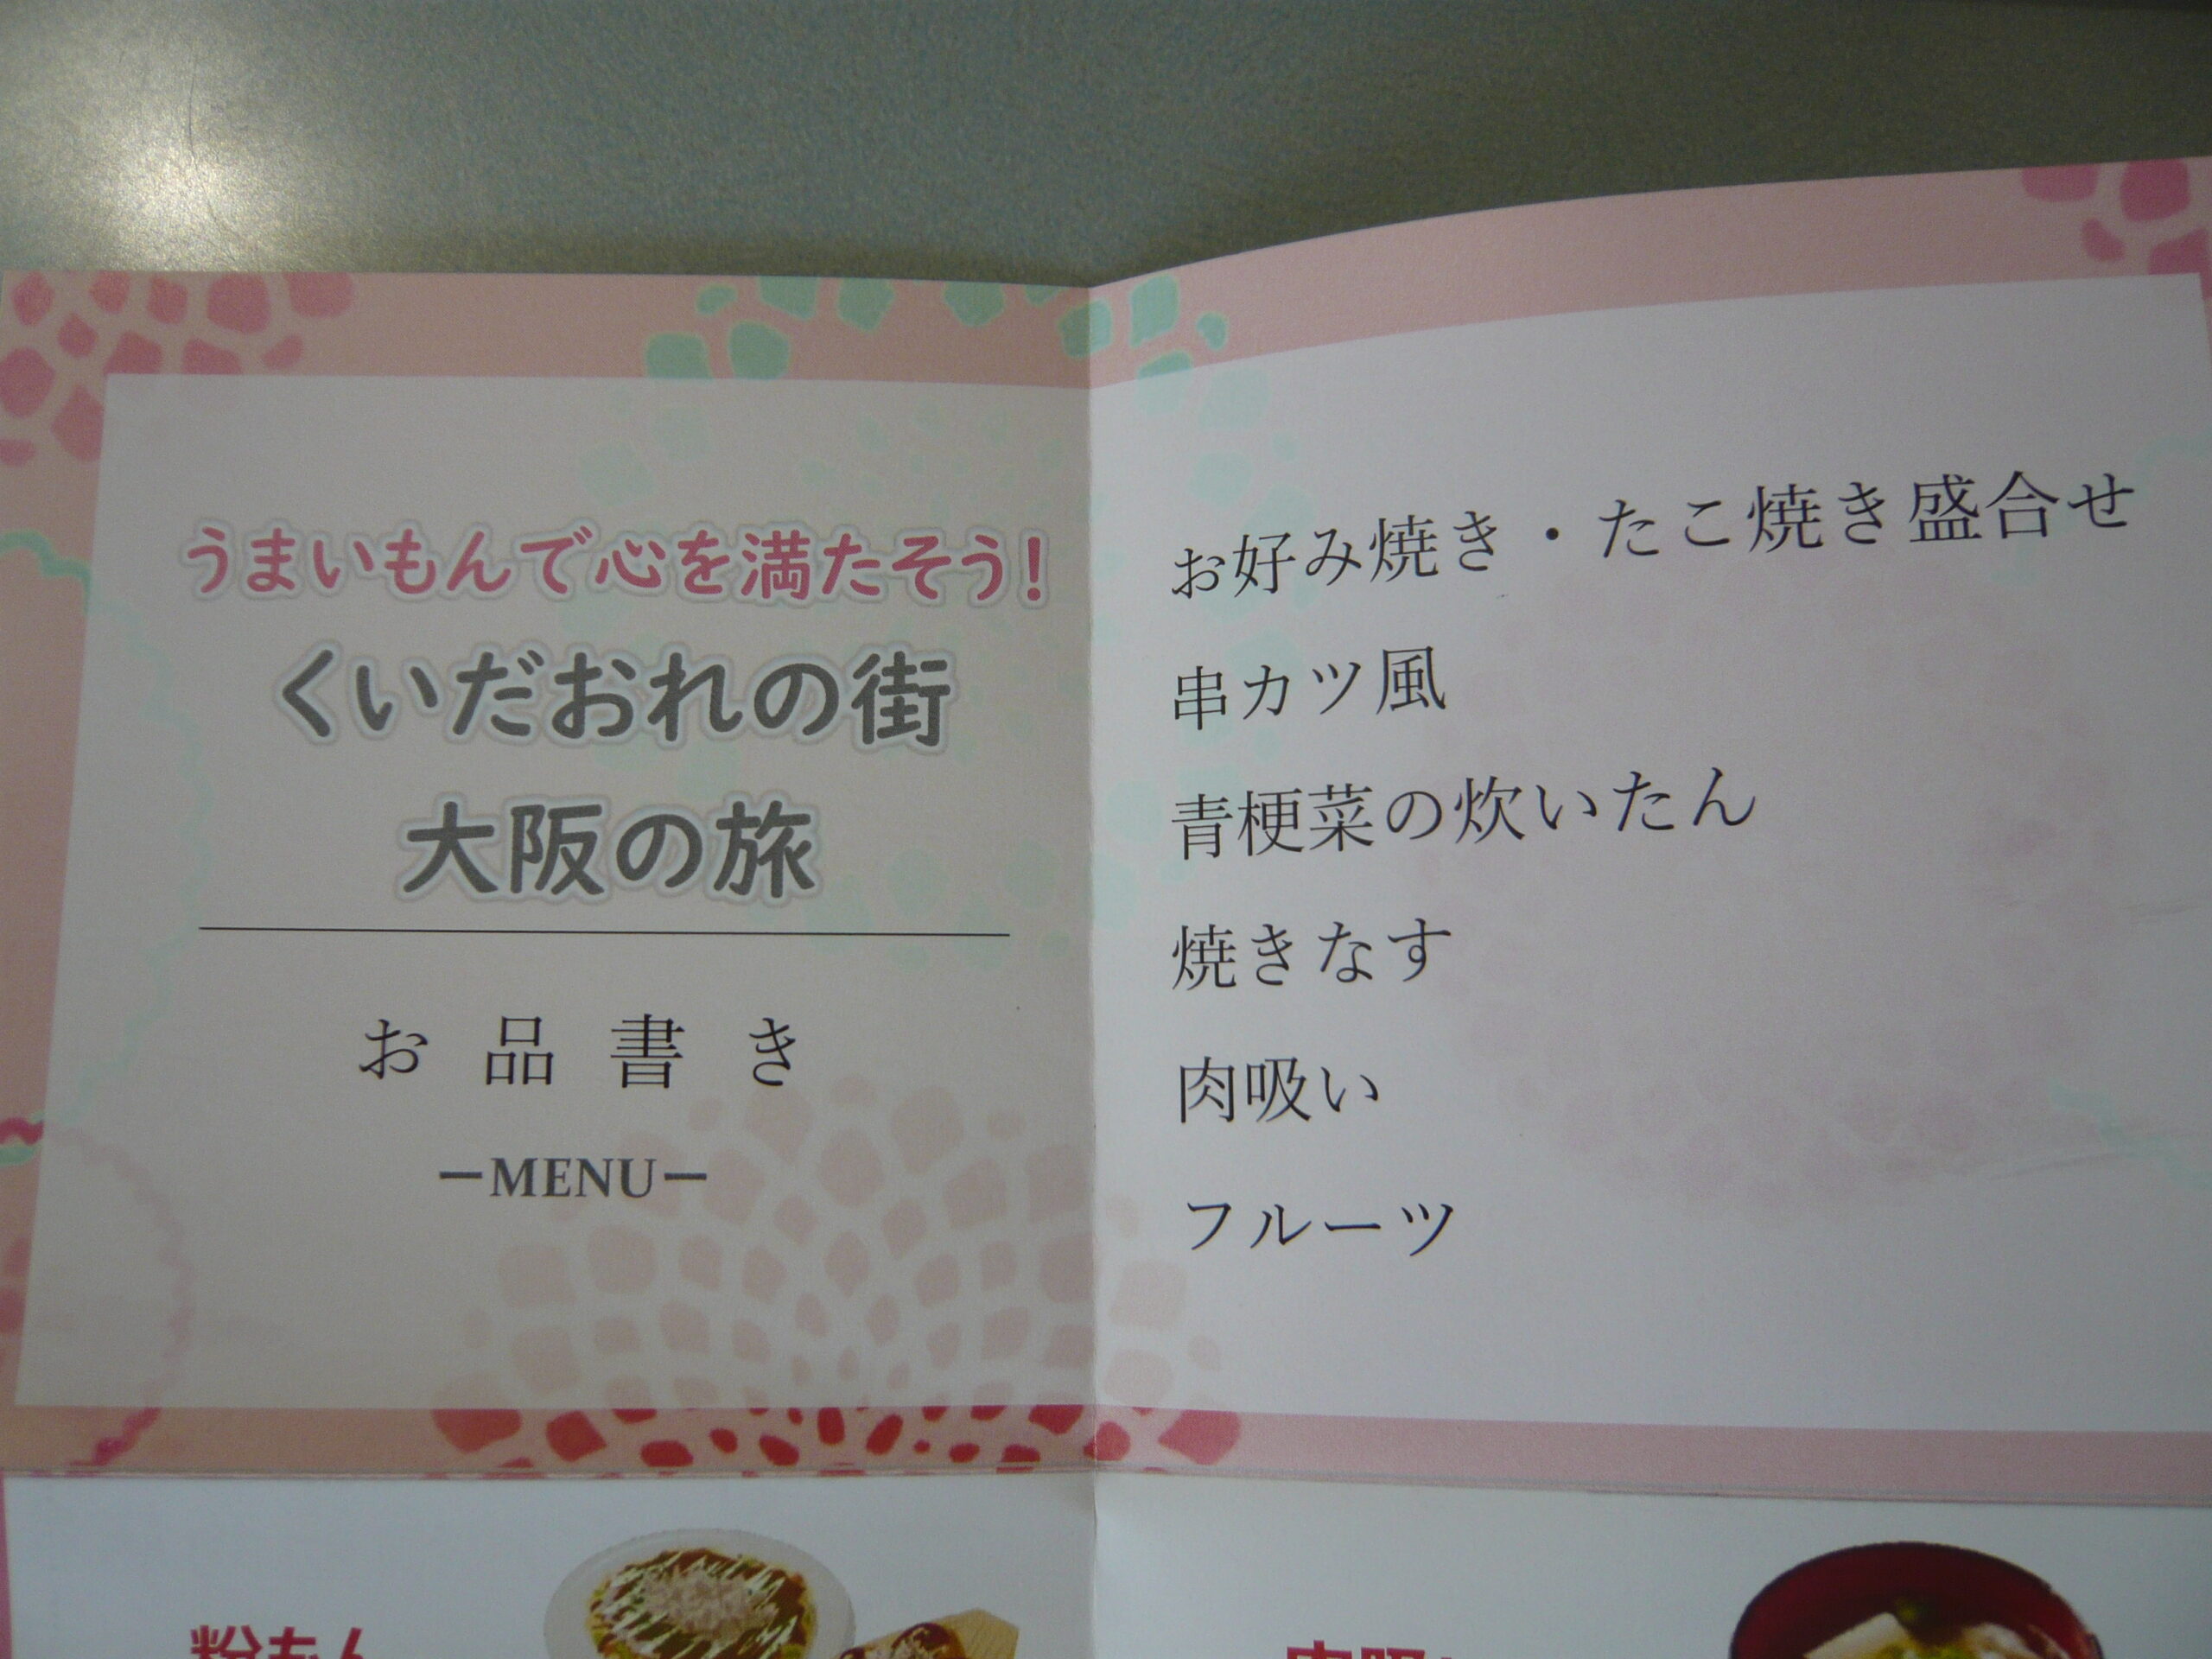 うまいもんで心を満たそう!
くいだおれの街
大阪の旅
お品書き
ーMENUー
お好み焼き・たこ焼き盛合せ
串カツ風
青梗菜の炊いたん
焼きなす
肉吸い
フルーツ
粉もん